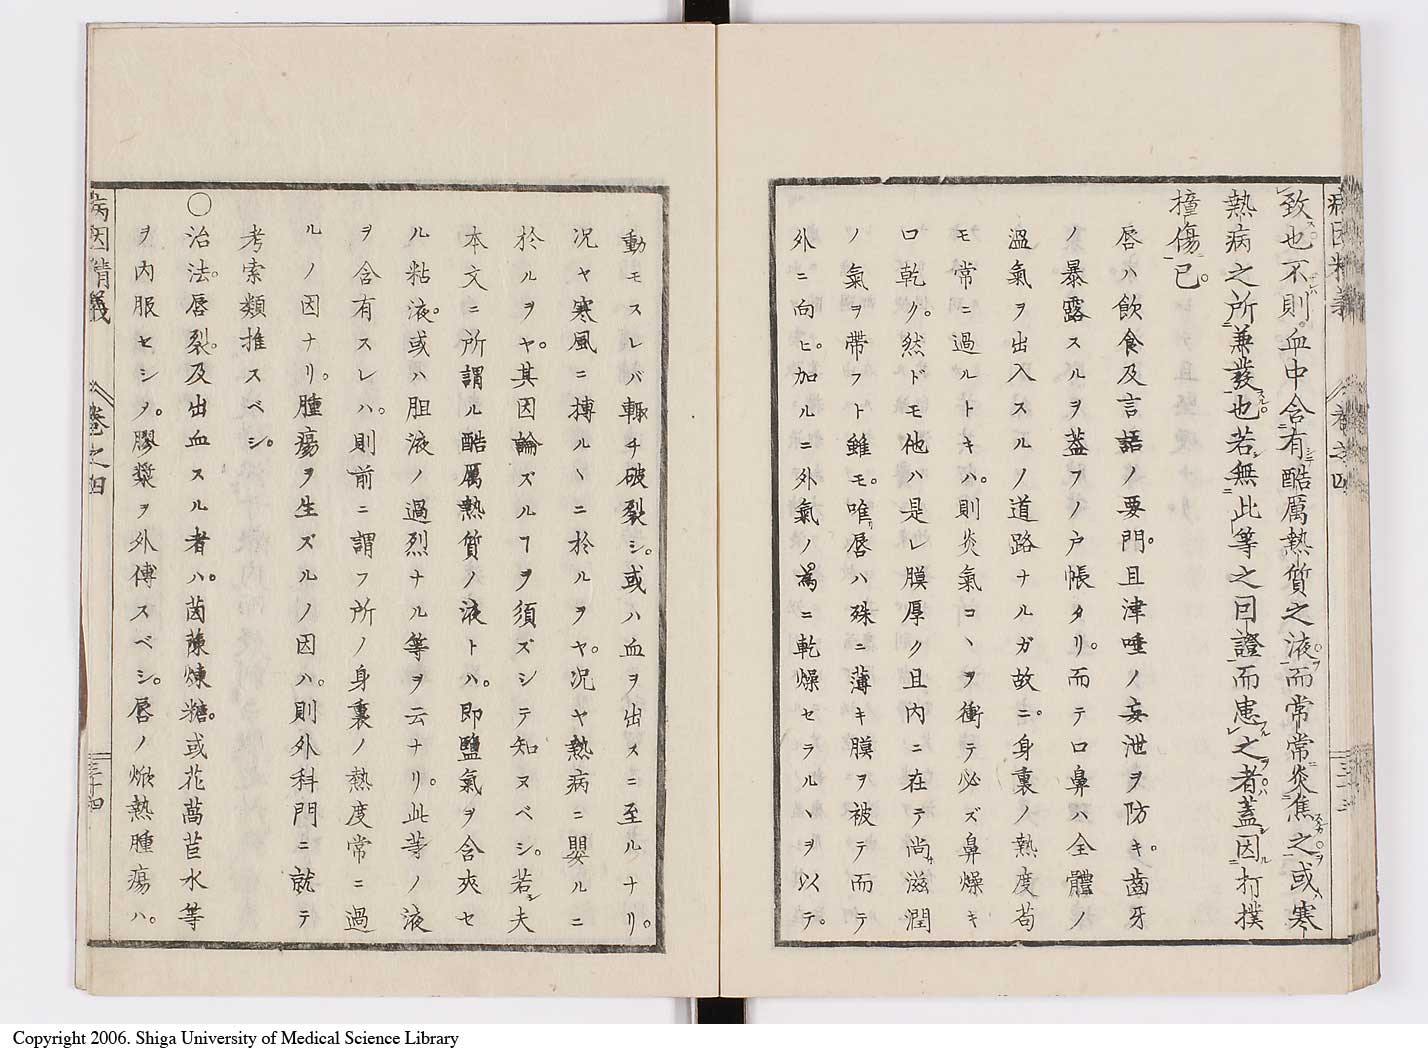 病因精義 巻之四 三十三
致也不則血中含有酷厲熱質之液而常常炎焦之或寒
熱病之所兼發也若無此等之曰證而患之者蓋因打撲
撞傷已
唇ハ飲食及言語ノ要門。且津唾ノ妄泄ヲ防キ。齒牙
ノ暴露スルヲ蓋フノ戸帳タリ。而テ口鼻ハ全體ノ
溫氣ヲ出入スルノ道路ナルガ故ニ。身裏ノ熱度苟
モ常ニ過ルトキハ。則炎氣コヽヲ衝テ必ズ鼻燥キ
口乾ク。然ドモ他ハ是レ膜厚ク且内ニ在テ尚滋潤
ノ氣ヲ帶フト雖モ。唯唇ハ殊ニ薄キ膜ヲ被テ而テ
外ニ向ヒ。加ルニ外氣ノ爲ニ乾燥セラルヽヲ以テ。
動モスレバ輙チ破裂シ。或ハ血ヲ出スニ至ルナリ。
况ヤ寒風ニ搏ルヽニ於ルヲヤ。况ヤ熱病ニ嬰ルニ
於ルヲヤ。其因論ズルヿヲ須ズシテ知ヌベシ。若シ夫
本文ニ所謂ル酷厲熱質ノ液トハ。即鹽氣ヲ含夾セ
ル粘液。或ハ胆液ノ過烈ナル等ヲ云ナリ。此等ノ液
ヲ含有スレハ。則前ニ謂フ所ノ身裏ノ熱度常ニ過
ルノ因ナリ。腫瘍ヲ生ズルノ因ハ。則外科門ニ就テ
考索類推スベシ。
○治法。唇裂。及出血スル者ハ。茵蔯煉糖。或花萵苣水等
ヲ内服セシメ。膠漿ヲ外傅スベシ。唇ノ焮熱腫瘍ハ。
病因精義 巻之四 三十四
Copyright 2006. Shiga University of Medical Science Library